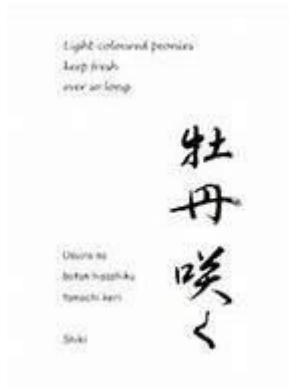 Light-coloured peonies
keep fresh
ever so long
牡丹咲く
Usuiro no
botan hisashiku
tamochi keri
Shiki